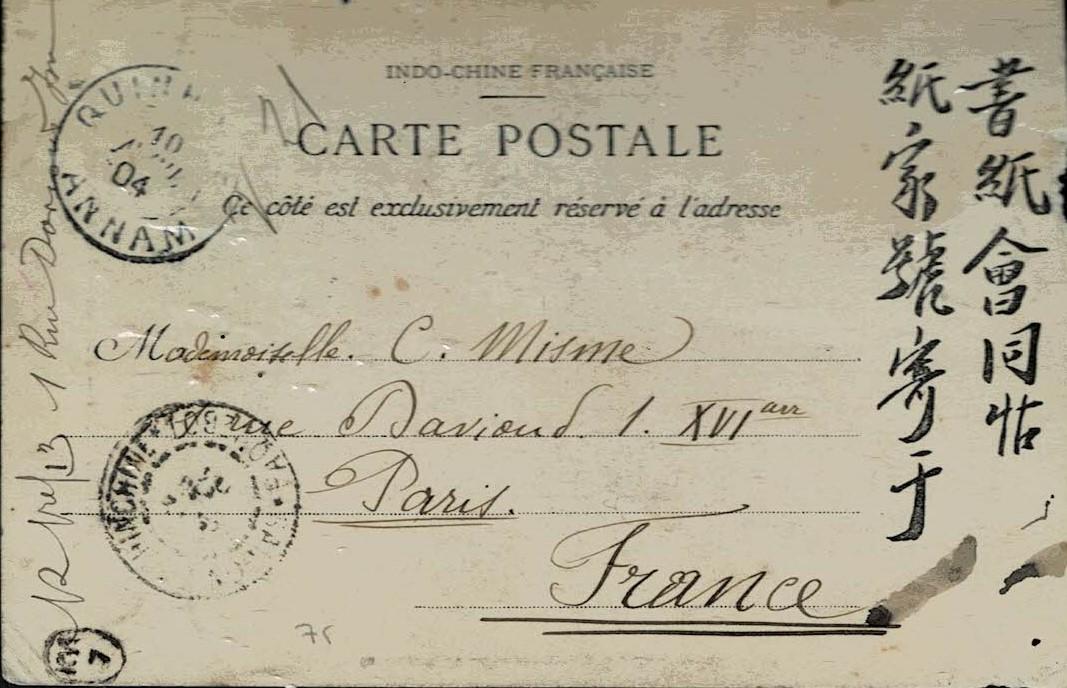 INDO-CHINE FRANÇAISE
CARTE POSTALE
Ce côté est exclusivement réservé à l'adresse
書紙會同帖
紙家號寄于
ANNAM
10
04
Mademoiselle. C. Misme
rue Davioud. 1. XVI arr
Paris.
France
1 Rue
75
7